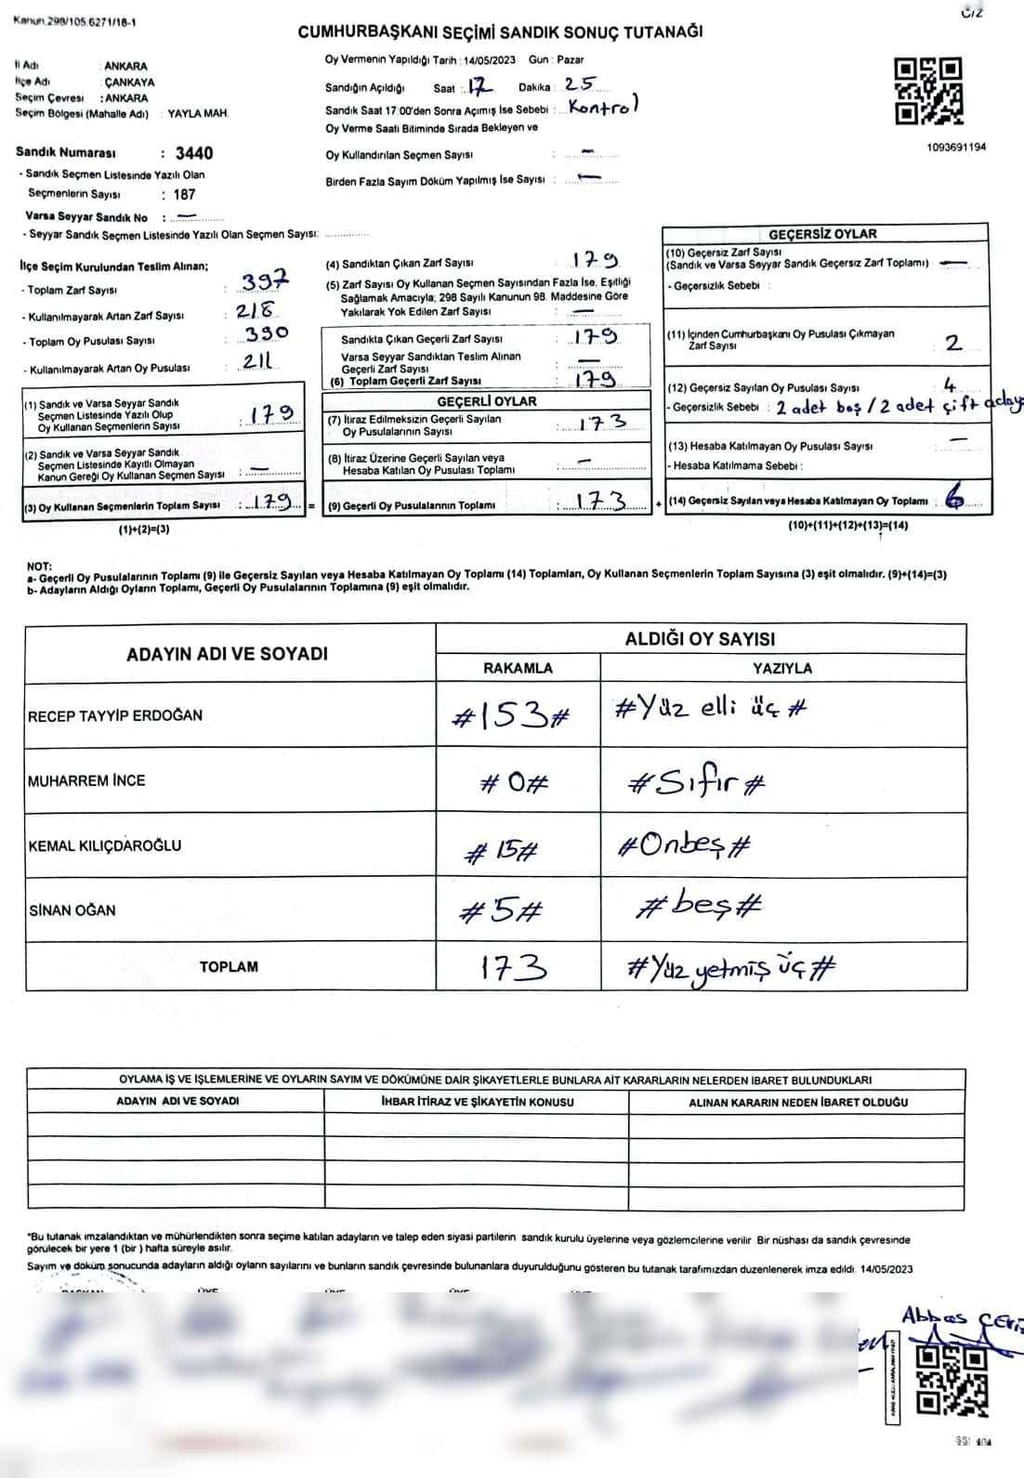 Kanun 298/105.6271/18-1
CUMHURBAŞKANI SEÇİMİ SANDIK SONUÇ TUTANAĞI
İl Adı : ANKARA
İlçe Adı : ÇANKAYA
Seçim Çevresi : ANKARA
Seçim Bölgesi (Mahalle Adı) : YAYLA MAH.
Sandık Numarası : 3440
- Sandık Seçmen Listesinde Yazılı Olan
Seçmenlerin Sayısı : 187
Varsa Seyyar Sandık No : —
- Seyyar Sandık Seçmen Listesinde Yazılı Olan Seçmen Sayısı:
Oy Vermenin Yapıldığı Tarih : 14/05/2023 Gün : Pazar
Sandığın Açıldığı Saat : 17 Dakika : 25
Sandık Saat 17.00'den Sonra Açımış İse Sebebi : Kontrol
Oy Verme Saati Bitiminde Sırada Bekleyen ve
Oy Kullandırılan Seçmen Sayısı : —
Birden Fazla Sayım Döküm Yapılmış İse Sayısı : —
1093691194
İlçe Seçim Kurulundan Teslim Alınan;
- Toplam Zarf Sayısı : 397
- Kullanılmayarak Artan Zarf Sayısı : 218
- Toplam Oy Pusulası Sayısı : 390
- Kullanılmayarak Artan Oy Pusulası : 211
(1) Sandık ve Varsa Seyyar Sandık
Seçmen Listesinde Yazılı Olup
Oy Kullanan Seçmenlerin Sayısı : 179
(2) Sandık ve Varsa Seyyar Sandık
Seçmen Listesinde Kayıtlı Olmayan
Kanun Gereği Oy Kullanan Seçmen Sayısı : —
(3) Oy Kullanan Seçmenlerin Toplam Sayısı : 179 =
(1)+(2)=(3)
(4) Sandıktan Çıkan Zarf Sayısı : 179
(5) Zarf Sayısı Oy Kullanan Seçmen Sayısından Fazla İse, Eşitliği
Sağlamak Amacıyla; 298 Sayılı Kanunun 98. Maddesine Göre
Yakılarak Yok Edilen Zarf Sayısı : —
Sandıkta Çıkan Geçerli Zarf Sayısı : 179
Varsa Seyyar Sandıktan Teslim Alınan
Geçerli Zarf Sayısı : —
(6) Toplam Geçerli Zarf Sayısı : 179
GEÇERLİ OYLAR
(7) İtiraz Edilmeksizin Geçerli Sayılan
Oy Pusulalarının Sayısı : 173
(8) İtiraz Üzerine Geçerli Sayılan veya
Hesaba Katılan Oy Pusulası Toplamı : —
(9) Geçerli Oy Pusulalarının Toplamı : 173 +
GEÇERSİZ OYLAR
(10) Geçersiz Zarf Sayısı
(Sandık ve Varsa Seyyar Sandık Geçersiz Zarf Toplamı) : —
- Geçersizlik Sebebi :
(11) İçinden Cumhurbaşkanı Oy Pusulası Çıkmayan
Zarf Sayısı : 2
(12) Geçersiz Sayılan Oy Pusulası Sayısı : 4
- Geçersizlik Sebebi : 2 adet boş / 2 adet çift aday
(13) Hesaba Katılmayan Oy Pusulası Sayısı : —
- Hesaba Katılmama Sebebi :
(14) Geçersiz Sayılan veya Hesaba Katılmayan Oy Toplamı : 6
(10)+(11)+(12)+(13)=(14)
NOT:
a- Geçerli Oy Pusulalarının Toplamı (9) ile Geçersiz Sayılan veya Hesaba Katılmayan Oy Toplamı (14) Toplamları, Oy Kullanan Seçmenlerin Toplam Sayısına (3) eşit olmalıdır. (9)+(14)=(3)
b- Adayların Aldığı Oyların Toplamı, Geçerli Oy Pusulalarının Toplamına (9) eşit olmalıdır.
ADAYIN ADI VE SOYADI
ALDIĞI OY SAYISI
RAKAMLA YAZIYLA
RECEP TAYYİP ERDOĞAN #153# #Yüz elli üç#
MUHARREM İNCE #0# #Sıfır#
KEMAL KILIÇDAROĞLU #15# #Onbeş#
SİNAN OĞAN #5# #beş#
TOPLAM 173 #Yüz yetmiş üç#
OYLAMA İŞ VE İŞLEMLERİNE VE OYLARIN SAYIM VE DÖKÜMÜNE DAİR ŞİKAYETLERLE BUNLARA AİT KARARLARIN NELERDEN İBARET BULUNDUKLARI
ADAYIN ADI VE SOYADI İHBAR İTİRAZ VE ŞİKAYETİN KONUSU ALINAN KARARIN NEDEN İBARET OLDUĞU
*Bu tutanak imzalandıktan ve mühürlendikten sonra seçime katılan adayların ve talep eden siyasi partilerin sandık kurulu üyelerine veya gözlemcilerine verilir. Bir nüshası da sandık çevresinde
görülecek bir yere 1 (bir ) hafta süreyle asılır.
Sayım ve döküm sonucunda adayların aldığı oyların sayılarını ve bunların sandık çevresinde bulunanlara duyurulduğunu gösteren bu tutanak tarafımızdan düzenlenerek imza edildi. 14/05/2023
Abbas